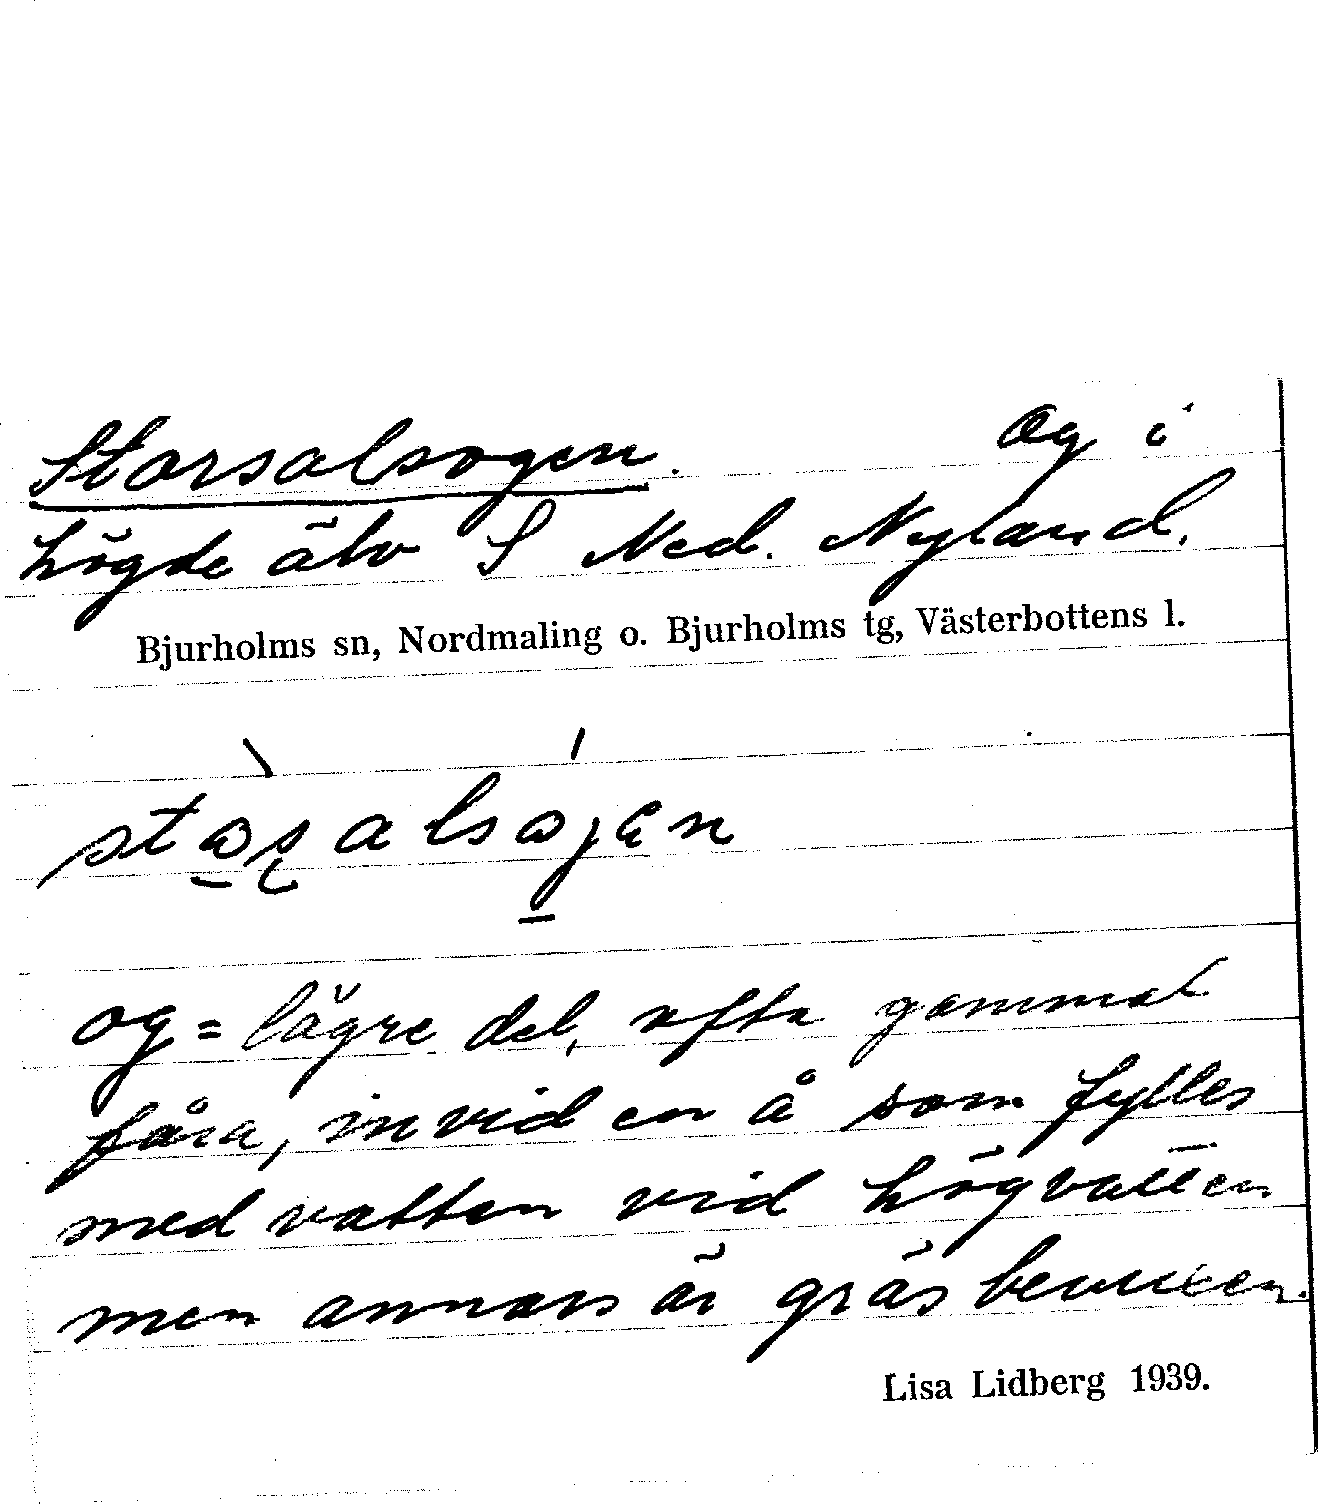 Storsalsogen. Og i
högde älv S Ned. Nyland.
Bjurholms sn, Nordmaling o. Bjurholms tg, Västerbottens l.
og = lägre del, ofta gammal
fåra, invid en å som fylles
med vatten vid högvatten
men annars är gräsbevuxen.
Lisa Lidberg 1939.